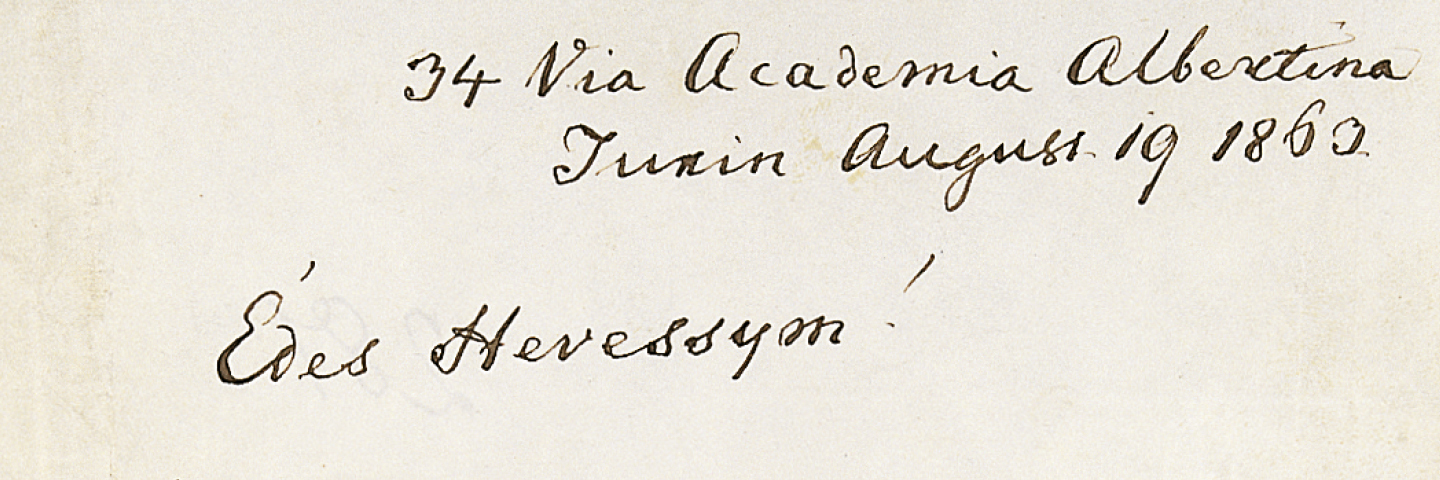 34 Via Academia Albertina
Turin August 19 1863
Édes Hevessym!